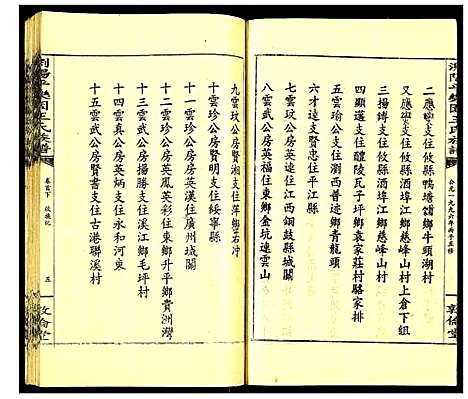 瀏陽平樂園王氏族譜
公元一九九六年丙子五修
敦倫堂
二應中支住攸縣鴨塘鋪鄉牛頭湖村
又應中支住攸縣酒埠江鄉慈峰山村上倉下組
三揚鏄支住攸縣酒埠江鄉慈峰山村
四顯蓬支住醴陵瓦子坪鄉袁家莊村駱家排
五雲瑜公支住瀏西普迹鄉青龍頭
六才遠支賢忠住平江縣
七雲玟公房英遠住江西銅鼓縣城關
八雲武公房英福住東鄉金坑連雲山
九雲玟公房賢湘支住萍鄉
十雲珍公房賢明支住綏寧縣
十一雲珍公房英漢住廣州城關
十二雲珍公房英鳳英彩住東鄉升平鄉貴洲灣
十三雲武公房揚勝支住溪江鄉毛坪村
十四雲真公房英炳支住永和河東
十五雲武公房賢書支住古港聯溪村
瀏陽平樂園王氏族譜
卷首下
五
敦倫堂